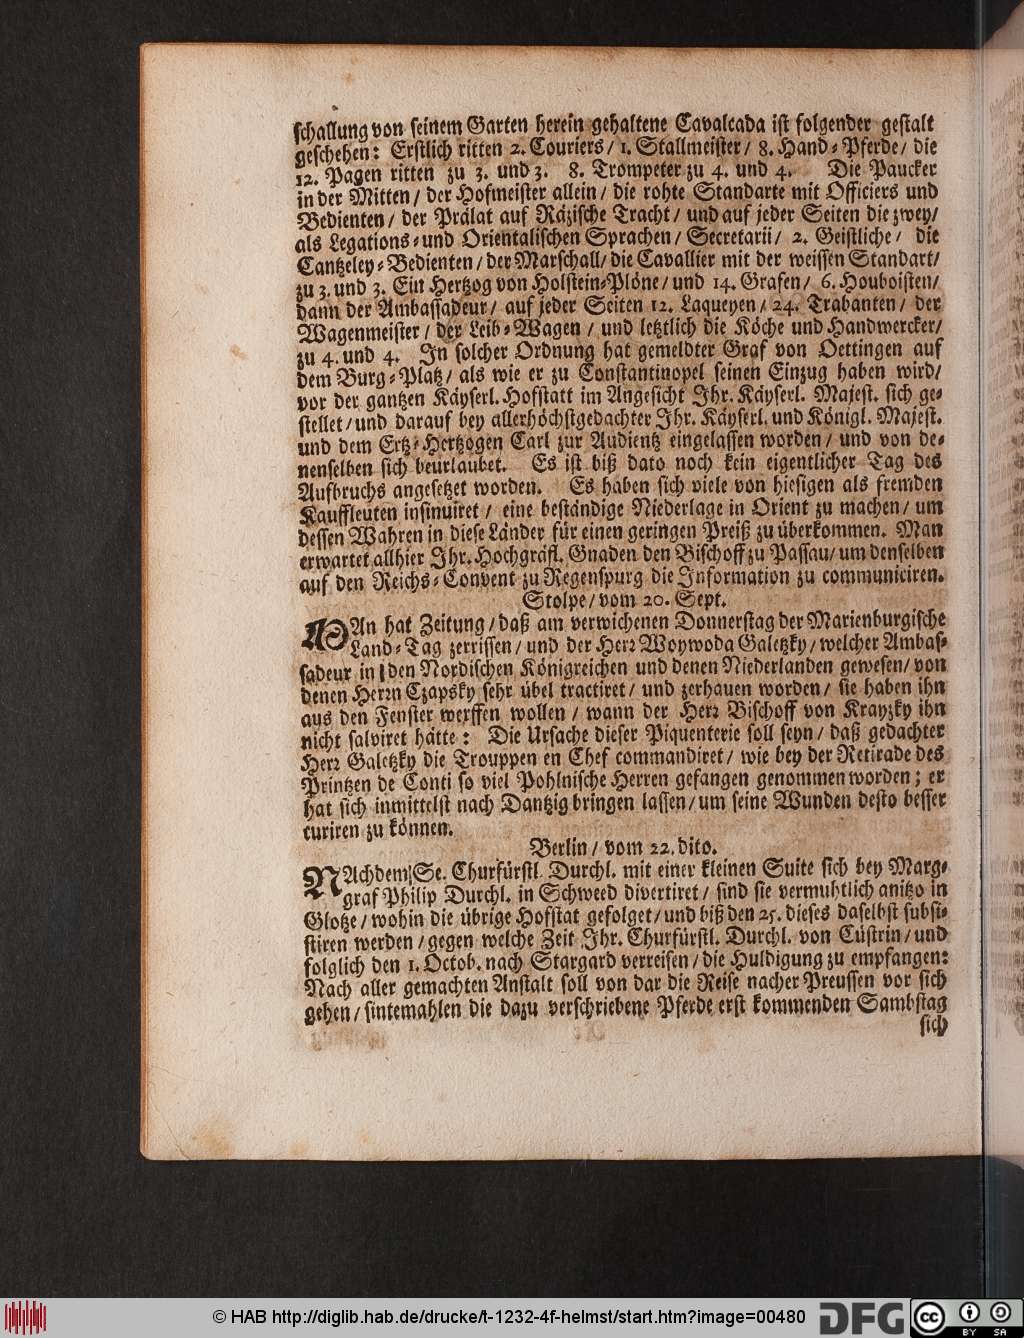 schallung von seinem Garten herein gehaltene Cavalcada ist folgender gestalt
geschehen: Erstlich ritten 2. Couriers/ 1. Stallmeister/ 8. Hand-Pferde/ die
12. Pagen ritten zu 3. und 3. 8. Trompeter zu 4. und 4. Die Paucker
in der Mitten/ der Hofmeister allein/ die rohte Standarte mit Officiers und
Bedienten/ der Prälat auf Räzische Tracht/ und auf jeder Seiten die zwey/
als Legations-und Orientalischen Sprachen/ Secretarii/ 2. Geistliche/ die
Cantzeley-Bedienten/ der Marschall/ die Cavallier mit der weissen Standart/
zu 3. und 3. Ein Hertzog von Holstein-Plöne/ und 14. Grafen/ 6. Houboisten/
dann der Ambassadeur/ auf jeder Seiten 12. Laqueyen/ 24. Trabanten/ der
Wagenmeister/ der Leib-Wagen/ und letztlich die Köche und Handwercker/
zu 4. und 4. In solcher Ordnung hat gemeldter Graf von Oettingen auf
dem Burg-Platz/ als wie er zu Constantinopel seinen Einzug haben wird/
vor der gantzen Käyserl. Hofstatt im Angesicht Ihr. Käyserl. Majest. sich ge-
stellet/ und darauf bey allerhöchstgedachter Ihr. Käyserl. und Königl. Majest.
und dem Ertz-Hertzogen Carl zur Audientz eingelassen worden/ und von de-
nenselben sich beurlaubet. Es ist biß dato noch kein eigentlicher Tag des
Aufbruchs angesetzet worden. Es haben sich viele von hiesigen als fremden
Kauffleuten insinuiret/ eine beständige Niederlage in Orient zu machen/ um
dessen Wahren in diese Länder für einen geringen Preiß zu überkommen. Man
erwartet allhier Ihr. Hochgräfl. Gnaden den Bischoff zu Passau/ um denselben
auf den Reichs-Convent zu Regenspurg die Information zu communiciren.
Stolpe/ vom 20. Sept.
MAn hat Zeitung/ daß am verwichenen Donnerstag der Marienburgische
Land-Tag zerrissen/ und der Herr Woywoda Galetzky/ welcher Ambas-
sadeur in den Nordischen Königreichen und denen Niederlanden gewesen/ von
denen Herrn Czapsky sehr übel tractiret/ und zerhauen worden/ sie haben ihn
aus den Fenster werffen wollen/ wann der Herr Bischoff von Krayzky ihn
nicht salviret hätte: Die Ursache dieser Piquenterie soll seyn/ daß gedachter
Herr Galetzky die Trouppen en Chef commandiret/ wie bey der Retirade des
Printzen de Conti so viel Pohlnische Herren gefangen genommen worden; er
hat sich inmittelst nach Dantzig bringen lassen/ um seine Wunden desto besser
curiren zu können.
Berlin/ vom 22. dito.
NAchdem Se. Churfürstl. Durchl. mit einer kleinen Suite sich bey Marg-
graf Philip Durchl. in Schweed divertiret/ sind sie vermuhtlich anitzo in
Glotze/ wohin die übrige Hofstat gefolget/ und biß den 25. dieses daselbst subsi-
stiren werden/ gegen welche Zeit Ihr. Churfürstl. Durchl. von Cüstrin/ und
folglich den 1. Octob. nach Stargard verreisen/ die Huldigung zu empfangen:
Nach aller gemachten Anstalt soll von dar die Reise nacher Preussen vor sich
gehen/ sintemahlen die dazu verschriebene Pferde erst kommenden Sambstag
sich
© HAB http://diglib.hab.de/drucke/t-1232-4f-helmst/start.htm?image=00480 DFG cc BY SA